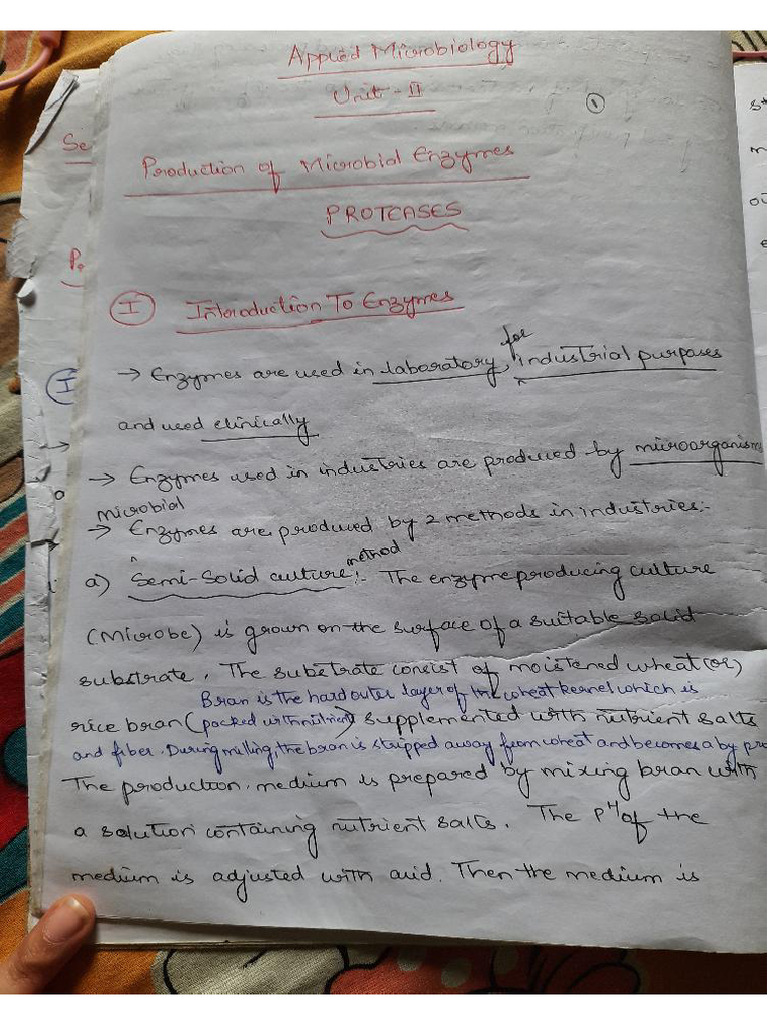 Applied Microbiology
Unit - II
①
Production of Microbial Enzymes
PROTEASES
I Introduction To Enzymes
→ Enzymes are used in laboratory, for industrial purpases
and used clinically
→ Enzymes used in industries are produced by microorganisms
microbial
→ Enzymes are produced by 2 methods in industries:-
a) Semi-Solid culture method:- The enzyme producing culture
(Microbe) is grown on the surface of a suitable solid
substrate. The substrate consist of moistened wheat (or)
Bran is the hard outer layer of the wheat kernel which is
rice bran (packed with nutrient) supplemented with nutrient salts
and fiber. During milling, the bran is stripped away from wheat and becomes a by pro
The production medium is prepared by mixing bran with
a solution containing nutrient salts. The pH of the
medium is adjusted with acid. Then the medium is